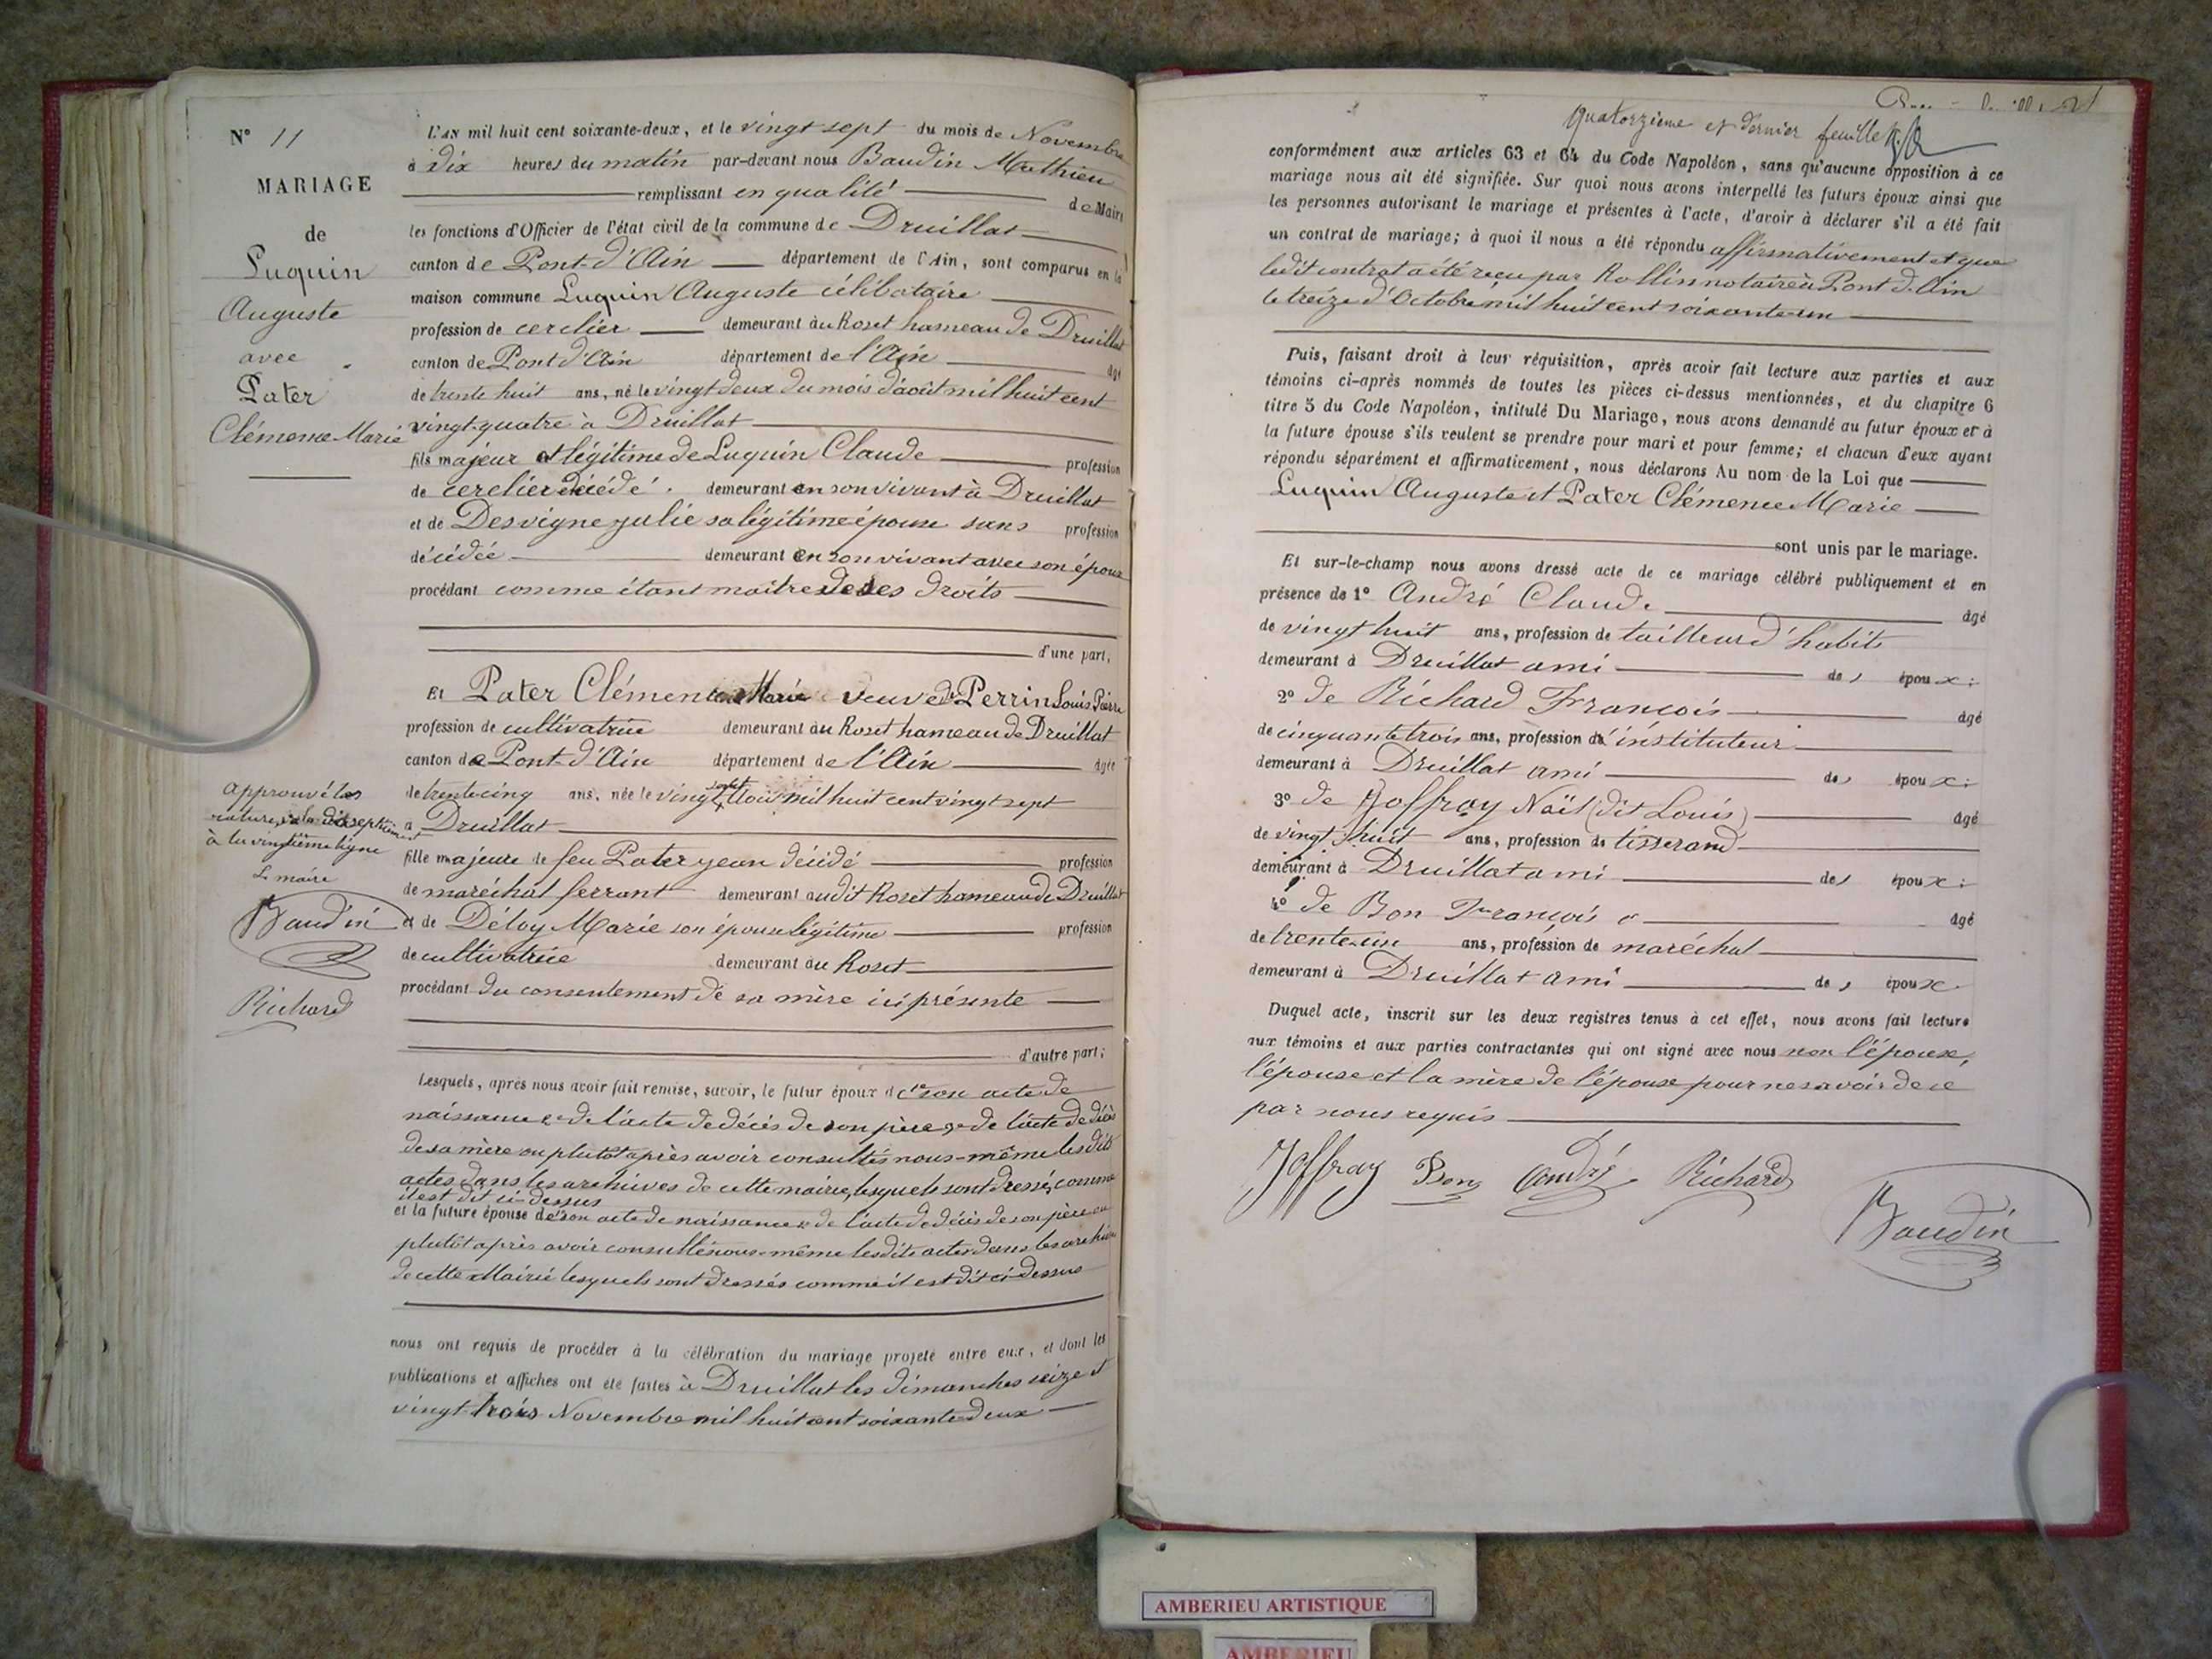 N° 11
MARIAGE
de
Luquin
Auguste
avec
Pater
Clémence Marie
L'AN mil huit cent soixante-deux, et le vingt sept du mois de Novembre
à dix heures du matin par-devant nous Baudin Mathieu
remplissant en qualité de Maire
les fonctions d'Officier de l'état civil de la commune de Druillat
canton de Pont-d'Ain département de l'Ain, sont comparus en la
maison commune Luquin Auguste célibataire
profession de cerclier demeurant au Roset hameau de Druillat
canton de Pont d'Ain département de l'Ain âgé
de trente huit ans, né le vingt deux du mois d'août mil huit cent
vingt-quatre à Druillat
fils majeur et légitime de Luquin Claude profession
de cerclier décédé demeurant en son vivant à Druillat
et de Desvigne julie sa légitime épouse sans profession
décédée demeurant en son vivant avec son époux
procédant comme étant maître de ses droits
d'une part;
Et Pater Clémence Marie veuve de Perrin Louis Pierre
profession de cultivatrice demeurant au Roset hameau de Druillat
canton de Pont-d'Ain département de l'Ain âgée
de trente cinq ans, née le vingt sept mil huit cent vingt sept
à Druillat
fille majeure de feu Pater jean décédé profession
de maréchal ferrant demeurant audit Roset hameau de Druillat
et de Déloy Marie son épouse légitime profession
de cultivatrice demeurant au Roset
procédant du consentement de sa mère ici présente
d'autre part;
approuvé les
à la vingtième ligne
Le maire
Baudin
Richard
Lesquels, après nous avoir fait remise, savoir, le futur époux de 1° son acte de
naissance 2° de l'acte de décès de son père 3° de l'acte de décès
de sa mère ou plutôt après avoir consultés nous-même lesdits
actes dans les archives de cette mairie, lesquels sont dressés comme
il est dit ci-dessus
et la future épouse de son acte de naissance 2° de l'acte de décès de son père ou
plutôt après avoir consulté nous-même lesdits actes dans les archives
de cette Mairie lesquels sont dressés comme il est dit ci-dessus
nous ont requis de procéder à la célébration du mariage projeté entre eux, et dont les
publications et affiches ont été faites à Druillat les dimanches seize et
vingt-trois Novembre mil huit cent soixante deux
quatorzième et dernier feuillet
conformément aux articles 63 et 64 du Code Napoléon, sans qu'aucune opposition à ce
mariage nous ait été signifiée. Sur quoi nous avons interpellé les futurs époux ainsi que
les personnes autorisant le mariage et présentes à l'acte, d'avoir à déclarer s'il a été fait
un contrat de mariage; à quoi il nous a été répondu affirmativement et que
ledit contrat a été reçu par Rollin notaire à Pont d'Ain
le treize d'Octobre mil huit cent soixante-un
Puis, faisant droit à leur réquisition, après avoir fait lecture aux parties et aux
témoins ci-après nommés de toutes les pièces ci-dessus mentionnées, et du chapitre 6
titre 5 du Code Napoléon, intitulé Du Mariage, nous avons demandé au futur époux et à
la future épouse s'ils veulent se prendre pour mari et pour femme; et chacun d'eux ayant
répondu séparément et affirmativement, nous déclarons Au nom de la Loi que
Luquin Auguste et Pater Clémence Marie
sont unis par le mariage.
Et sur-le-champ nous avons dressé acte de ce mariage célébré publiquement et en
présence de 1° André Claude âgé
de vingt huit ans, profession de tailleur d'habits
demeurant à Druillat ami des époux;
2° de Richard François âgé
de cinquante trois ans, profession d'instituteur
demeurant à Druillat ami des époux;
3° de Joffray Noël (dit Louis) âgé
de vingt huit ans, profession de tisserand
demeurant à Druillat ami des époux;
4° de Bon François âgé
de trente-un ans, profession de maréchal
demeurant à Druillat ami des époux
Duquel acte, inscrit sur les deux registres tenus à cet effet, nous avons fait lecture
aux témoins et aux parties contractantes qui ont signé avec nous non l'époux,
l'épouse et la mère de l'épouse pour ne savoir de ce
par nous requis
Joffray Bon André Richard
Baudin
AMBERIEU ARTISTIQUE
AMBERIEU